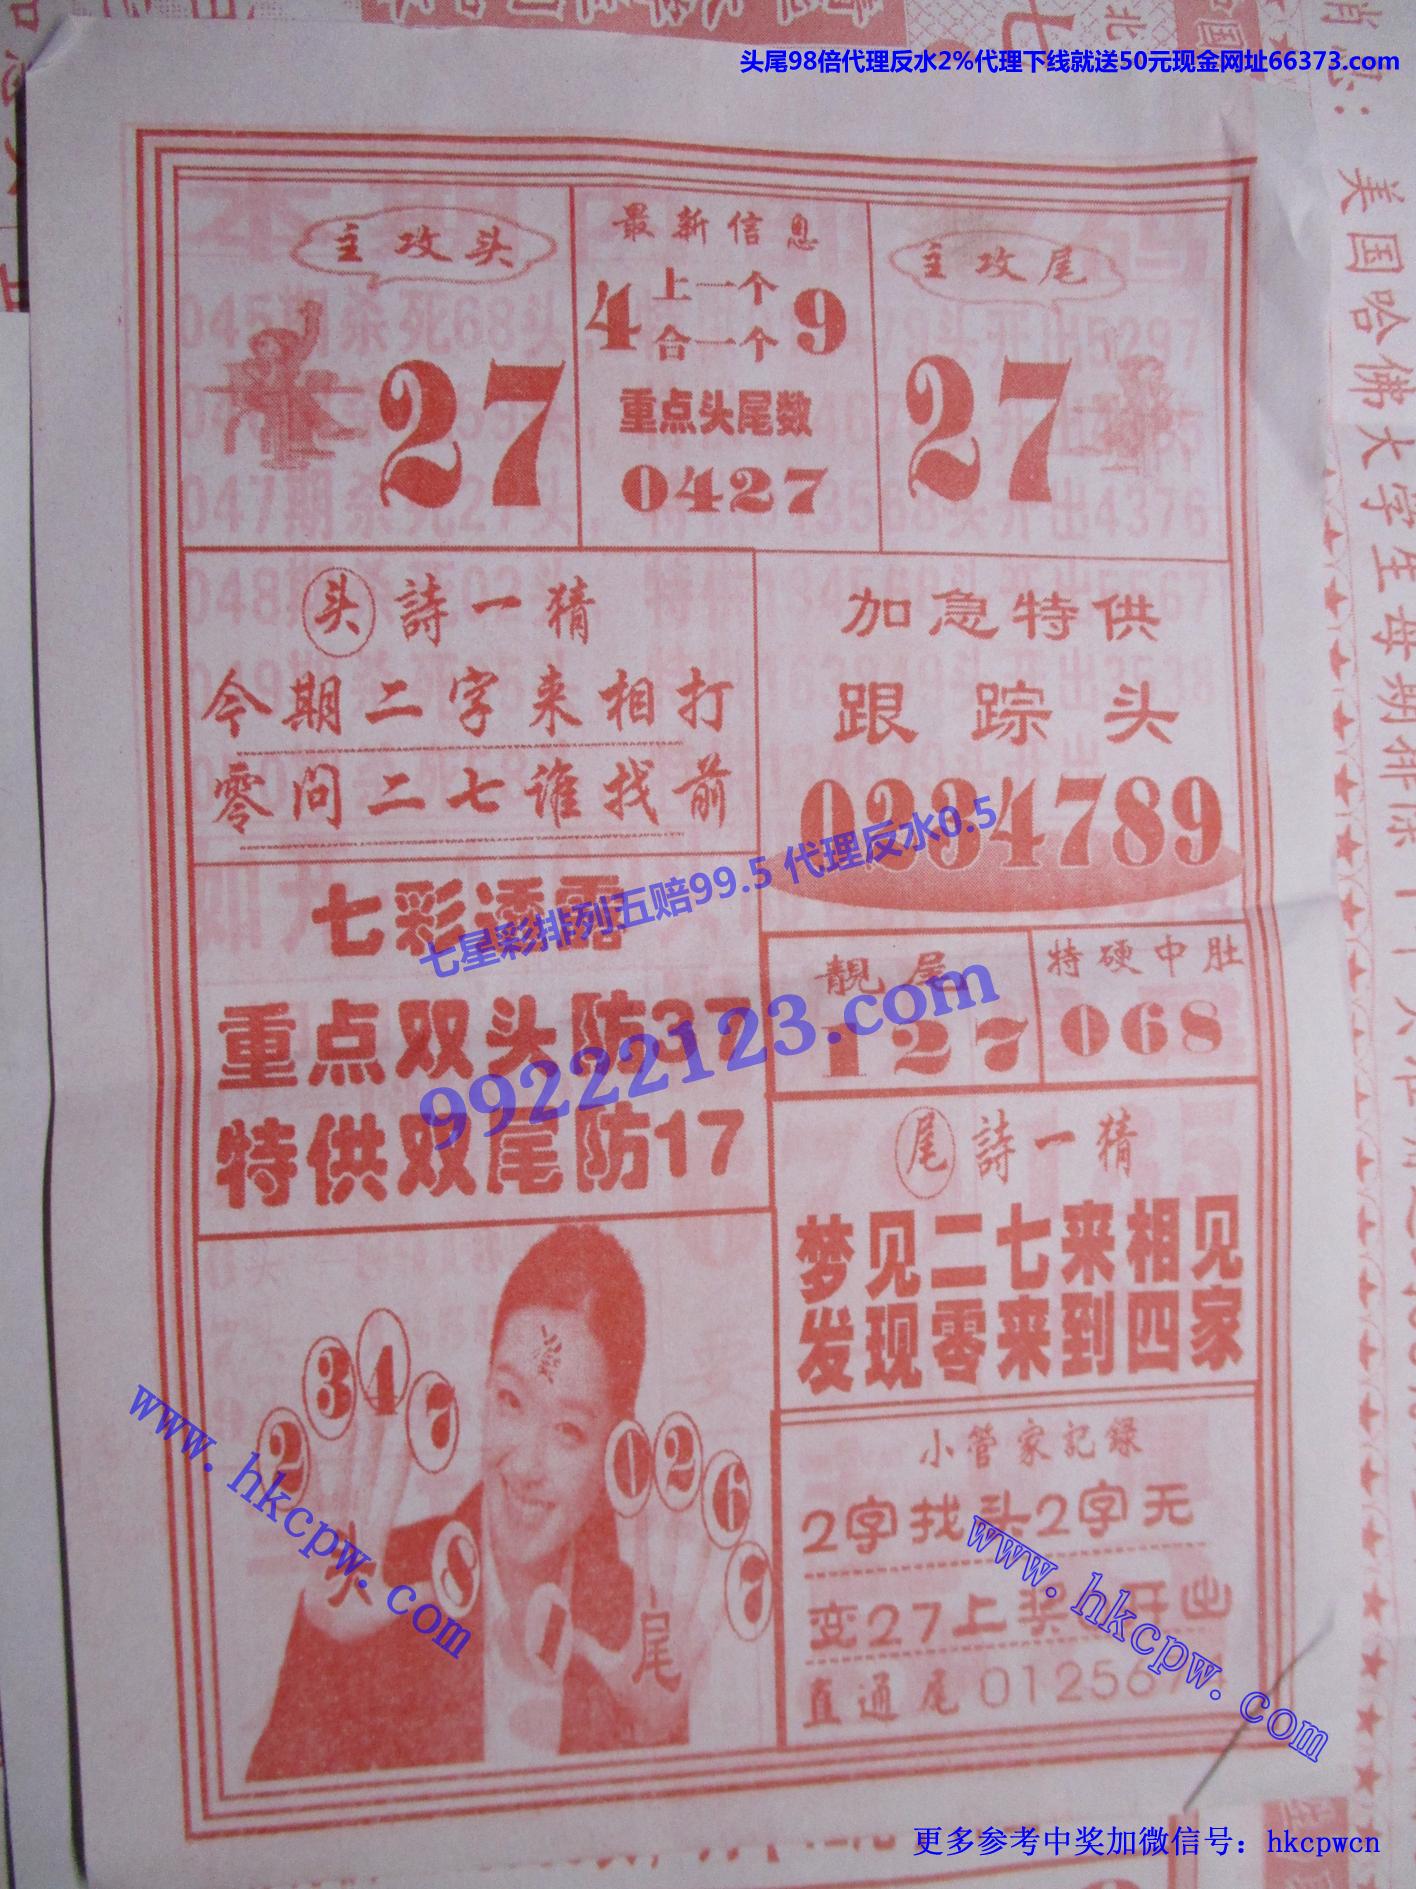 头尾98倍代理反水2%代理下线就送50元现金网址66373.com
主攻头
27
最新信息
4 上一个 9
合一个
重点头尾数
0427
主攻尾
27
头 詩一猜
今期二字来相打
零问二七谁找前
加急特供
跟踪头
0234789
七彩透露
重点双头防37
特供双尾防17
七星彩排列五赔99.5 代理反水0.5
99222123.com
靓尾
127
特硬中肚
068
尾 詩一猜
梦见二七来相见
发现零来到四家
2 3 4 7 8
头
0 2 6 7 1
尾
小管家記録
2字找头2字无
变27上奖 开出
直通尾 012567
www.hkcpw.com
www.hkcpw.com
美国哈佛大学生每期排除
更多参考中奖加微信号：hkcpwcn